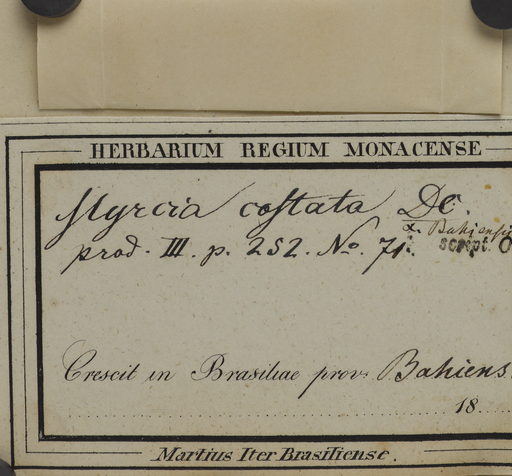 HERBARIUM REGIUM MONACENSE
Myrcia costata DC.
α. Bahiensis
prod. III. p. 252. No. 71.
script.
Crescit in Brasiliae prov. Bahiens
18
Martius Iter Brasiliense.